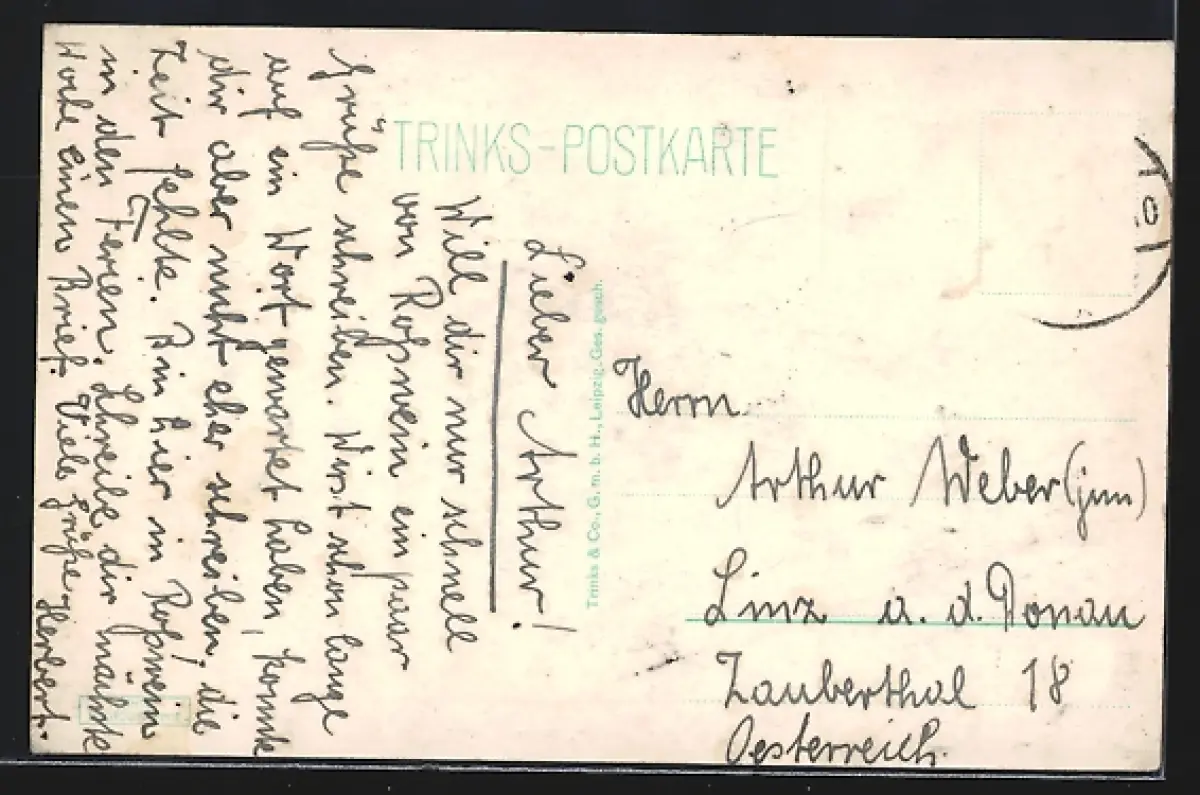 TRINKS-POSTKARTE
Lieber Arthur!
Will dir nur schnell
von Roßwein ein paar
Grüße schreiben. Wirst schon lange
auf ein Wort gewartet haben, konnte
dir aber nicht eher schreiben, die
Zeit fehlte. Bin hier in Roßwein
in den Ferien. Schreibe dir nächste
Woche einen Brief. Viele Grüße
Herbert.
Trinks & Co., G. m. b. H., Leipzig. Ges. gesch.
Herrn
Arthur Weber (jun)
Linz a. d. Donau
Zauberthal 18
Oesterreich.